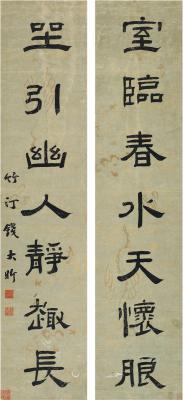 室臨春水天懷朖
坐引幽人靜趣長
竹汀錢大昕